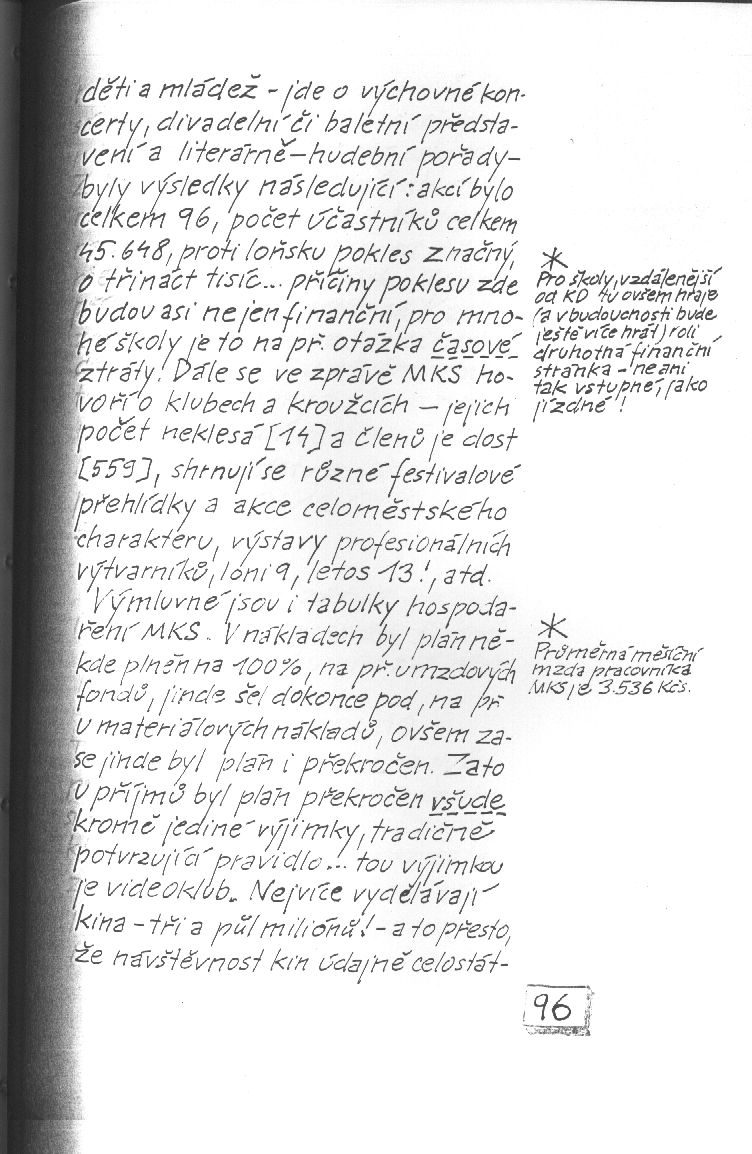 děti a mládež - jde o výchovné kon-
certy, divadelní či baletní předsta-
vení a literárně-hudební pořady-
byly výsledky následující: akcí bylo
celkem 96, počet účastníků celkem
45.648, proti loňsku pokles značný,
o třináct tisíc... příčiny poklesu zde
budou asi nejen finanční, pro mno-
hé školy je to na př. otázka časové
ztráty! Dále se ve zprávě MKS ho-
voří o klubech a kroužcích - jejich
počet neklesá [14] a členů je dost
[559], shrnují se různé festivalové
přehlídky a akce celoměstského
charakteru, výstavy profesionálních
výtvarníků, loni 9, letos 13!, atd.
Výmluvné jsou i tabulky hospoda-
ření MKS. V nákladech byl plán ně-
kde plněn na 100%, na př. u mzdových
fondů, jinde šel dokonce pod, na př.
u materiálových nákladů, ovšem za-
se jinde byl plán i překročen. Zato
u příjmů byl plán překročen všude
kromě jediné výjimky, tradičně
potvrzující pravidlo... tou výjimkou
je videoklub. Nejvíce vydělávají
kina - tři a půl miliónů! - a to přesto,
že návštěvnost kin údajně celostát-
*
Pro školy, vzdálenější
od KD tu ovšem hraje
(a v budoucnosti bude
ještě více hrát) roli
druhotná finanční
stránka - ne ani
tak vstupné, jako
jízdné!
*
Průměrná měsíční
mzda pracovníka
MKS je 3.536 Kčs.
96